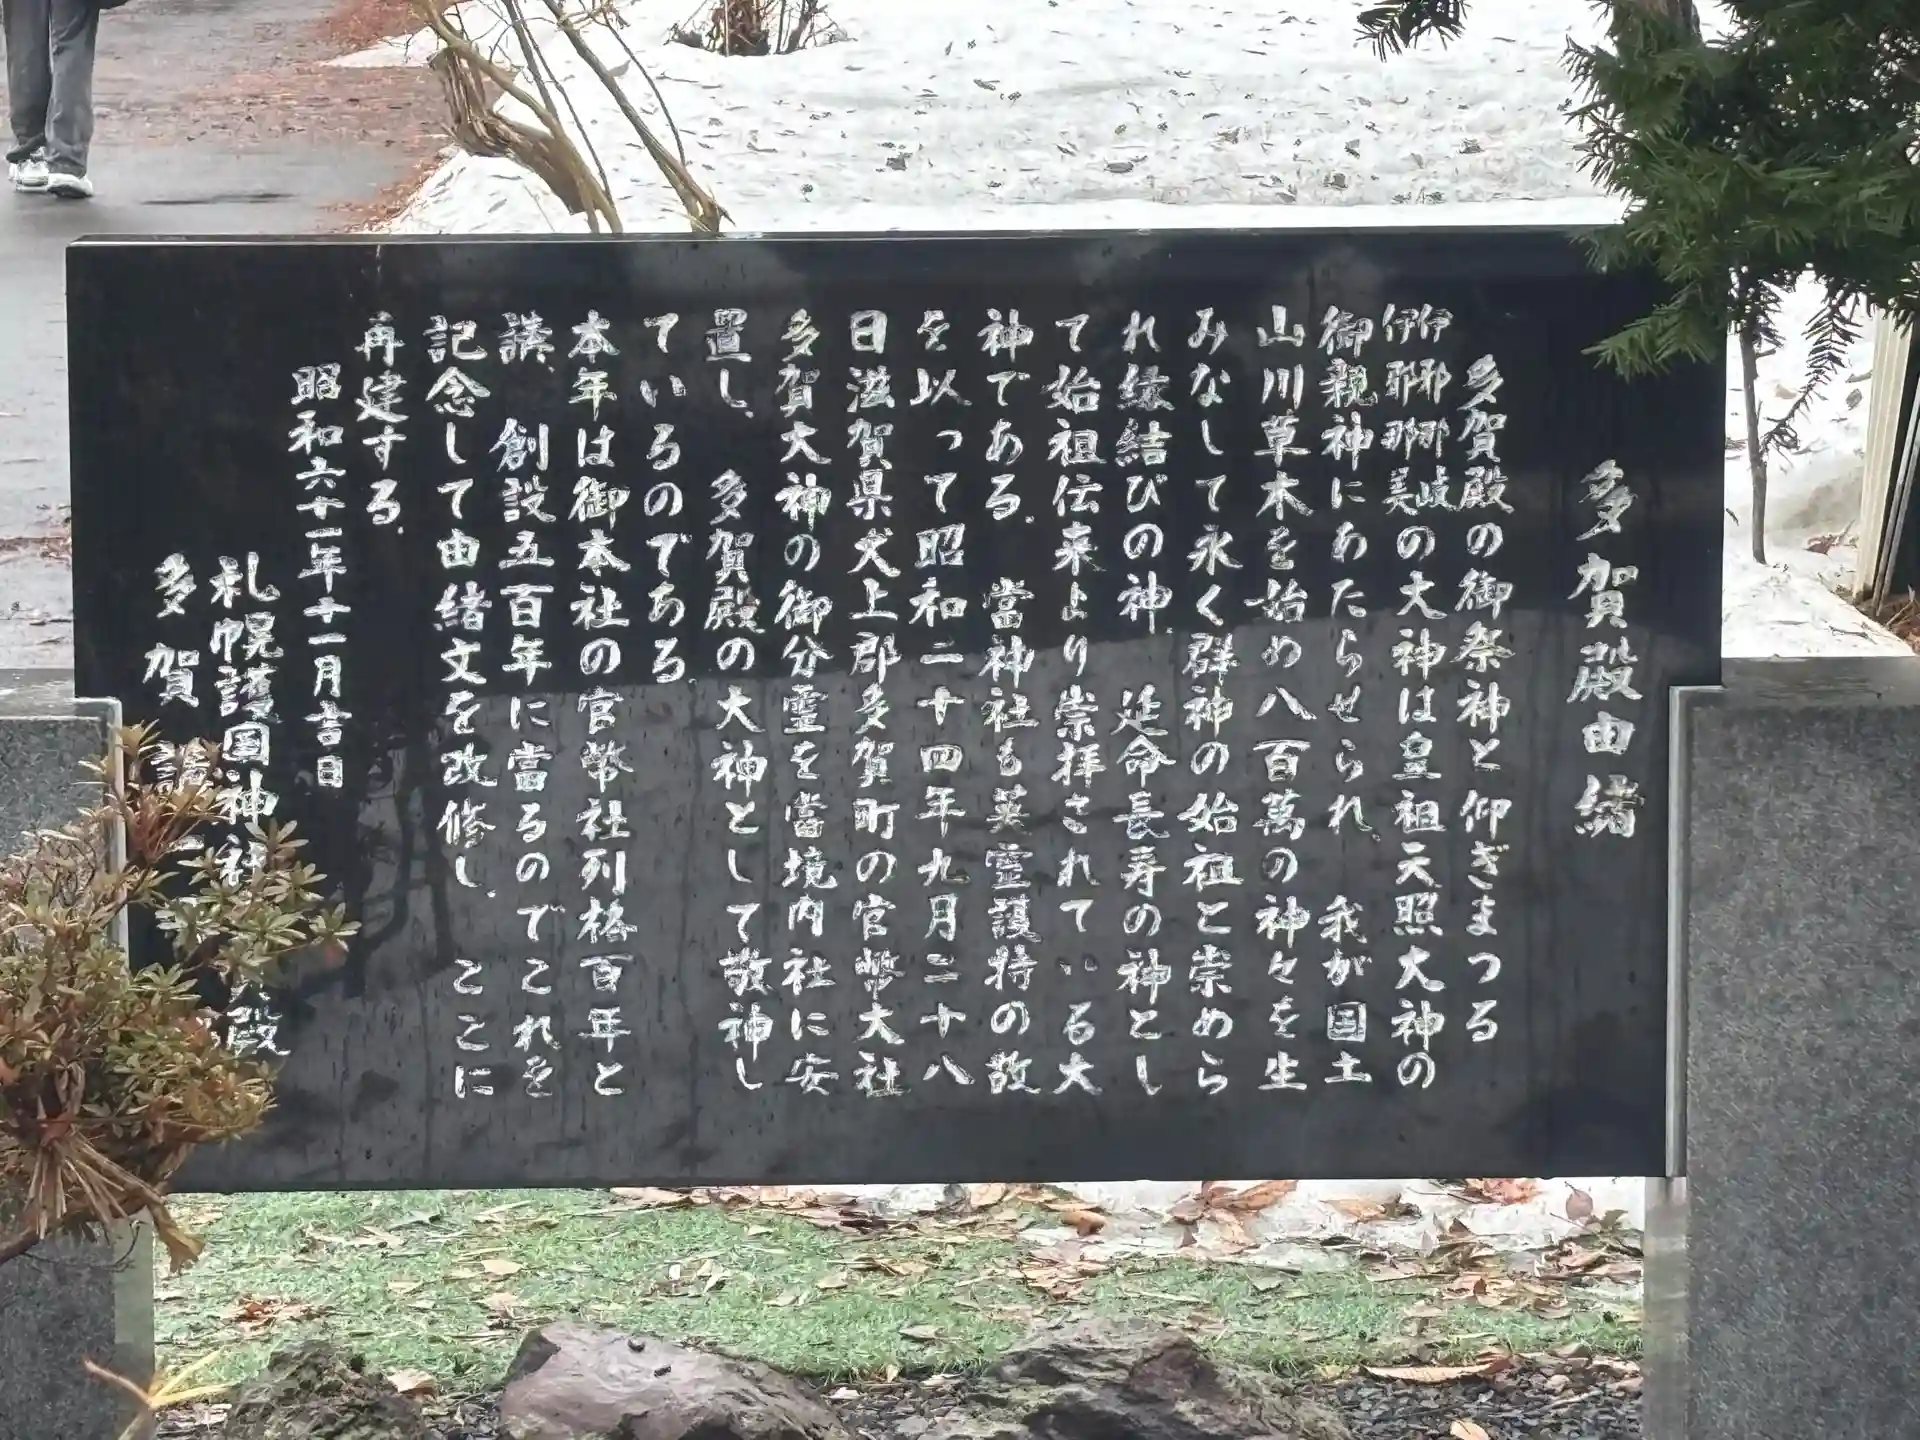 多賀殿由緒
多賀殿の御祭神と仰ぎまつる
伊耶那岐
伊耶那美の大神は皇祖天照大神の
御親神にあたらせられ、我が国土
山川草木を始め八百萬の神々を生
みなして永く群神の始祖と崇めら
れ縁結びの神、延命長寿の神とし
て始祖伝来より崇拝されている大
神である。當神社も英霊護持の故
を以って昭和二十四年九月二十八
日滋賀県犬上郡多賀町の官幣大社
多賀大神の御分霊を當境内社に安
置し、多賀殿の大神として敬神し
ているのである。
本年は御本社の官幣社列格百年と
講、創設五百年に當るのでこれを
記念して由緒文を改修し、ここに
再建する。
昭和六十一年十一月吉日
札幌護国神社 殿
多賀講